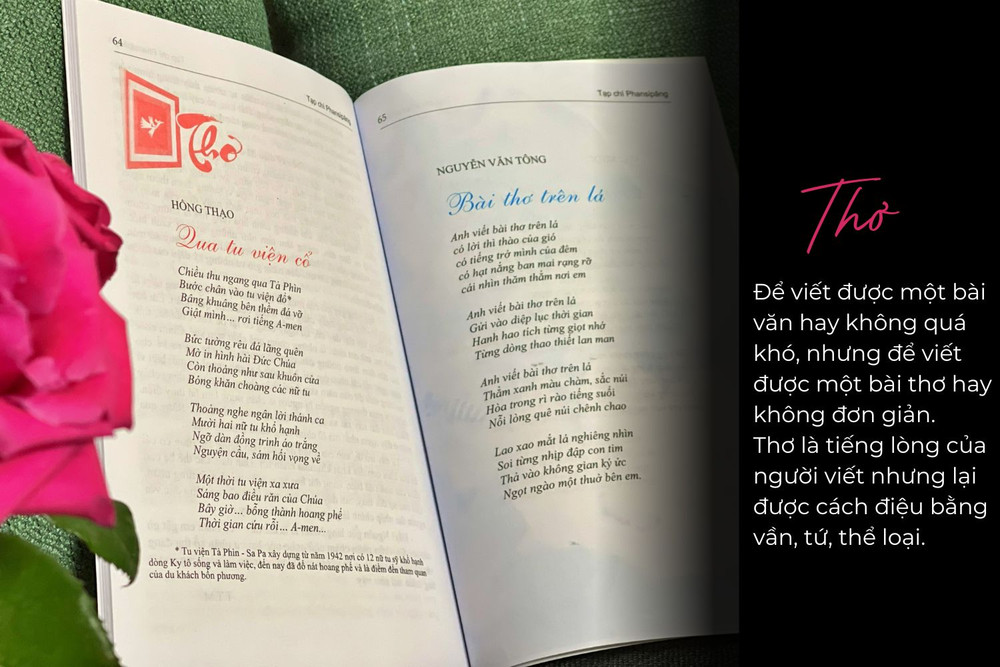 64
Tạp chí Phansipăng
Thơ
HỒNG THẠO
Qua tu viện cổ
Chiều thu ngang qua Tả Phìn
Bước chân vào tu viện đổ*
Bâng khuâng bên thềm đá vỡ
Giật mình... rơi tiếng A-men
Bức tường rêu đá lãng quên
Mờ in hình hài Đức Chúa
Còn thoảng như sau khuôn cửa
Bóng khăn choàng các nữ tu
Thoảng nghe ngân lời thánh ca
Mười hai nữ tu khổ hạnh
Ngỡ dàn đồng trinh áo trắng
Nguyện cầu, sám hối vọng về
Một thời tu viện xa xưa
Sáng bao điều răn của Chúa
Bây giờ... bỗng thành hoang phế
Thời gian cứu rỗi... A-men...
* Tu viện Tả Phìn - Sa Pa xây dựng từ năm 1942 nơi có 12 nữ tu sỹ khổ hạnh
dòng Ky tô sống và làm việc, đến nay đã đổ nát hoang phế và là điểm đến tham quan
của du khách bốn phương.
65
Tạp chí Phansipăng
NGUYỄN VĂN TÔNG
Bài thơ trên lá
Anh viết bài thơ trên lá
có lời thì thào của gió
có tiếng trở mình của đêm
có hạt nắng ban mai rạng rỡ
cái nhìn thăm thẳm nơi em
Anh viết bài thơ trên lá
Gửi vào diệp lục thời gian
Hanh hao tích từng giọt nhớ
Từng dòng thao thiết lan man
Anh viết bài thơ trên lá
Thẫm xanh màu chàm, sắc núi
Hòa trong rì rào tiếng suối
Nỗi lòng quê núi chênh chao
Lao xao mắt lá nghiêng nhìn
Soi từng nhịp đập con tim
Thả vào không gian ký ức
Ngọt ngào một thuở bên em.
Thơ
Để viết được một bài
văn hay không quá
khó, nhưng để viết
được một bài thơ hay
không đơn giản.
Thơ là tiếng lòng của
người viết nhưng lại
được cách điệu bằng
vần, tứ, thể loại.